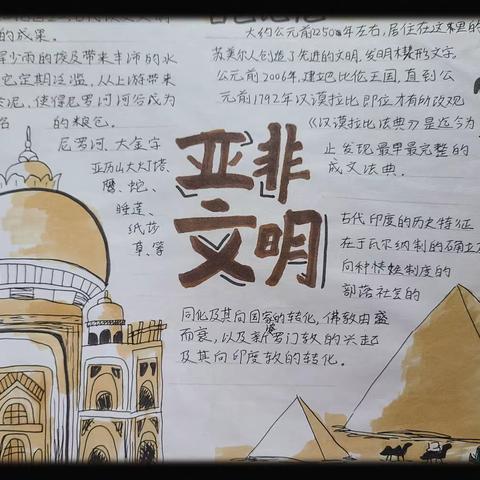 的成果。
少雨的埃及带来丰沛的水
它定期泛滥，从上游带来
淤泥，使得尼罗河河谷成为
名 的粮仓。
尼罗河、大金字
亚历山大大灯塔、
鹰、蛇、
睡莲、
纸莎
草、等
大约公元前3250年左右，居住在这里的
苏美尔人创造了先进的文明，发明楔形文字。
公元前2006年，建立巴比伦王国，直到公
元前1792年汉谟拉比即位才有所改观
《汉谟拉比法典》是迄今为
止发现最早最完整的
成文法典。
亚非
文明
古代印度的历史特征
在于瓦尔纳制的确立
向种姓制度的
部落社会的
同化及其向国家的转化，佛教由盛
而衰，以及新婆罗门教的兴起
及其向印度教的转化。